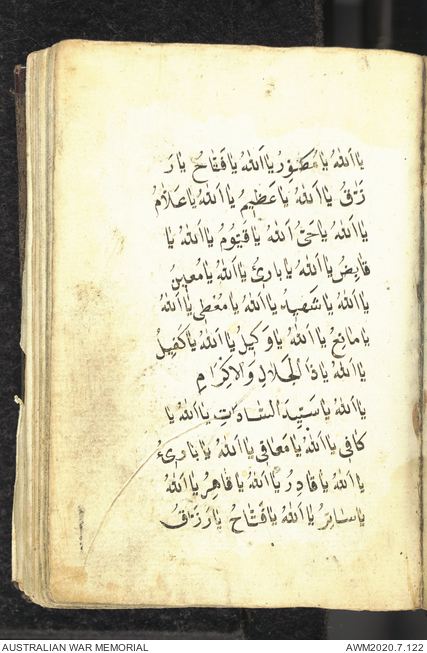 يا الله يا مصور يا الله يا فتاح يا ر
زاق يا الله يا عظيم يا الله يا علام
يا الله يا حي الله يا قيوم يا الله يا
قابض يا الله يا بارئ يا الله يا معين
يا الله يا شهيد يا الله يا معطي يا الله
يا مانع يا الله يا وكيل يا الله يا كفيل
يا الله يا ذا الجلال والاكرام
يا الله يا سيد السادات يا الله يا
كافي يا الله يا معافي يا الله يا بارئ
يا الله يا قادر يا الله يا قاهر يا الله
يا ساتر يا الله يا فتاح يا رزاق
AUSTRALIAN WAR MEMORIAL AWM2020.7.122